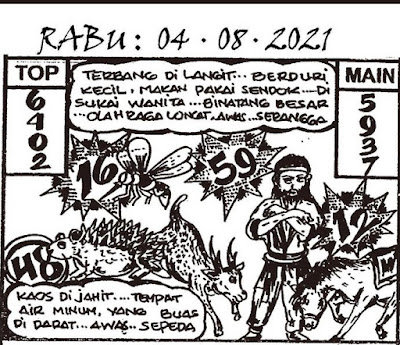 RABU: 04.08.2021
TOP
6
4
0
2
TERBANG DI LANGIT... BERDURI
KECIL, MAKAN PAKAI SENDOK....DI
SUKAI WANITA...BINATANG BESAR
...OLAHRAGA LONCAT, AWAS..SERANGGA
MAIN
5
9
3
7
16
59
12
48
KAOS DI JAHIT....TEMPAT
AIR MINUM, YANG BUAS
DI DARAT...AWAS..SEPEDA